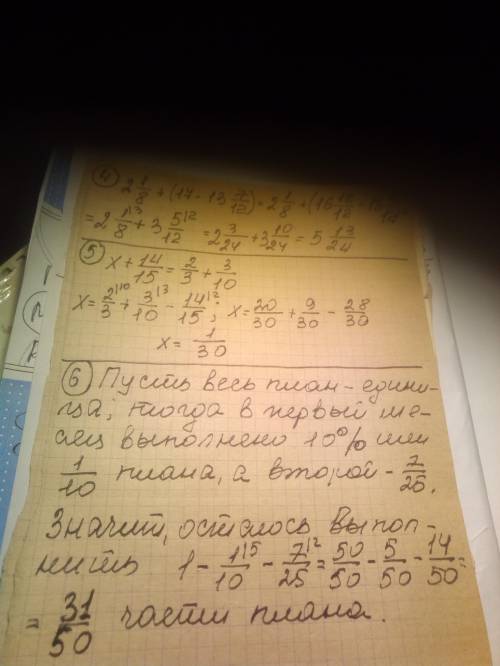 ④ 2 1/8 + (17 - 13 7/12) = 2 1/8 + (16 12/12 -
= 2 1/8 + 3 5/12 = 2 3/24 + 3 10/24 = 5 13/24
⑤ x + 14/15 = 2/3 + 3/10
x = 2/3 + 3/10 - 14/15; x = 20/30 + 9/30 - 28/30
x = 1/30
⑥ Пусть весь план - едини-
ца, тогда в первый ме-
сяц выполнено 10% или
1/10 плана, а второй - 7/25.
Значит, осталось выпол-
нить 1 - 1/10 - 7/25 = 50/50 - 5/50 - 14/50 =
= 31/50 части плана.